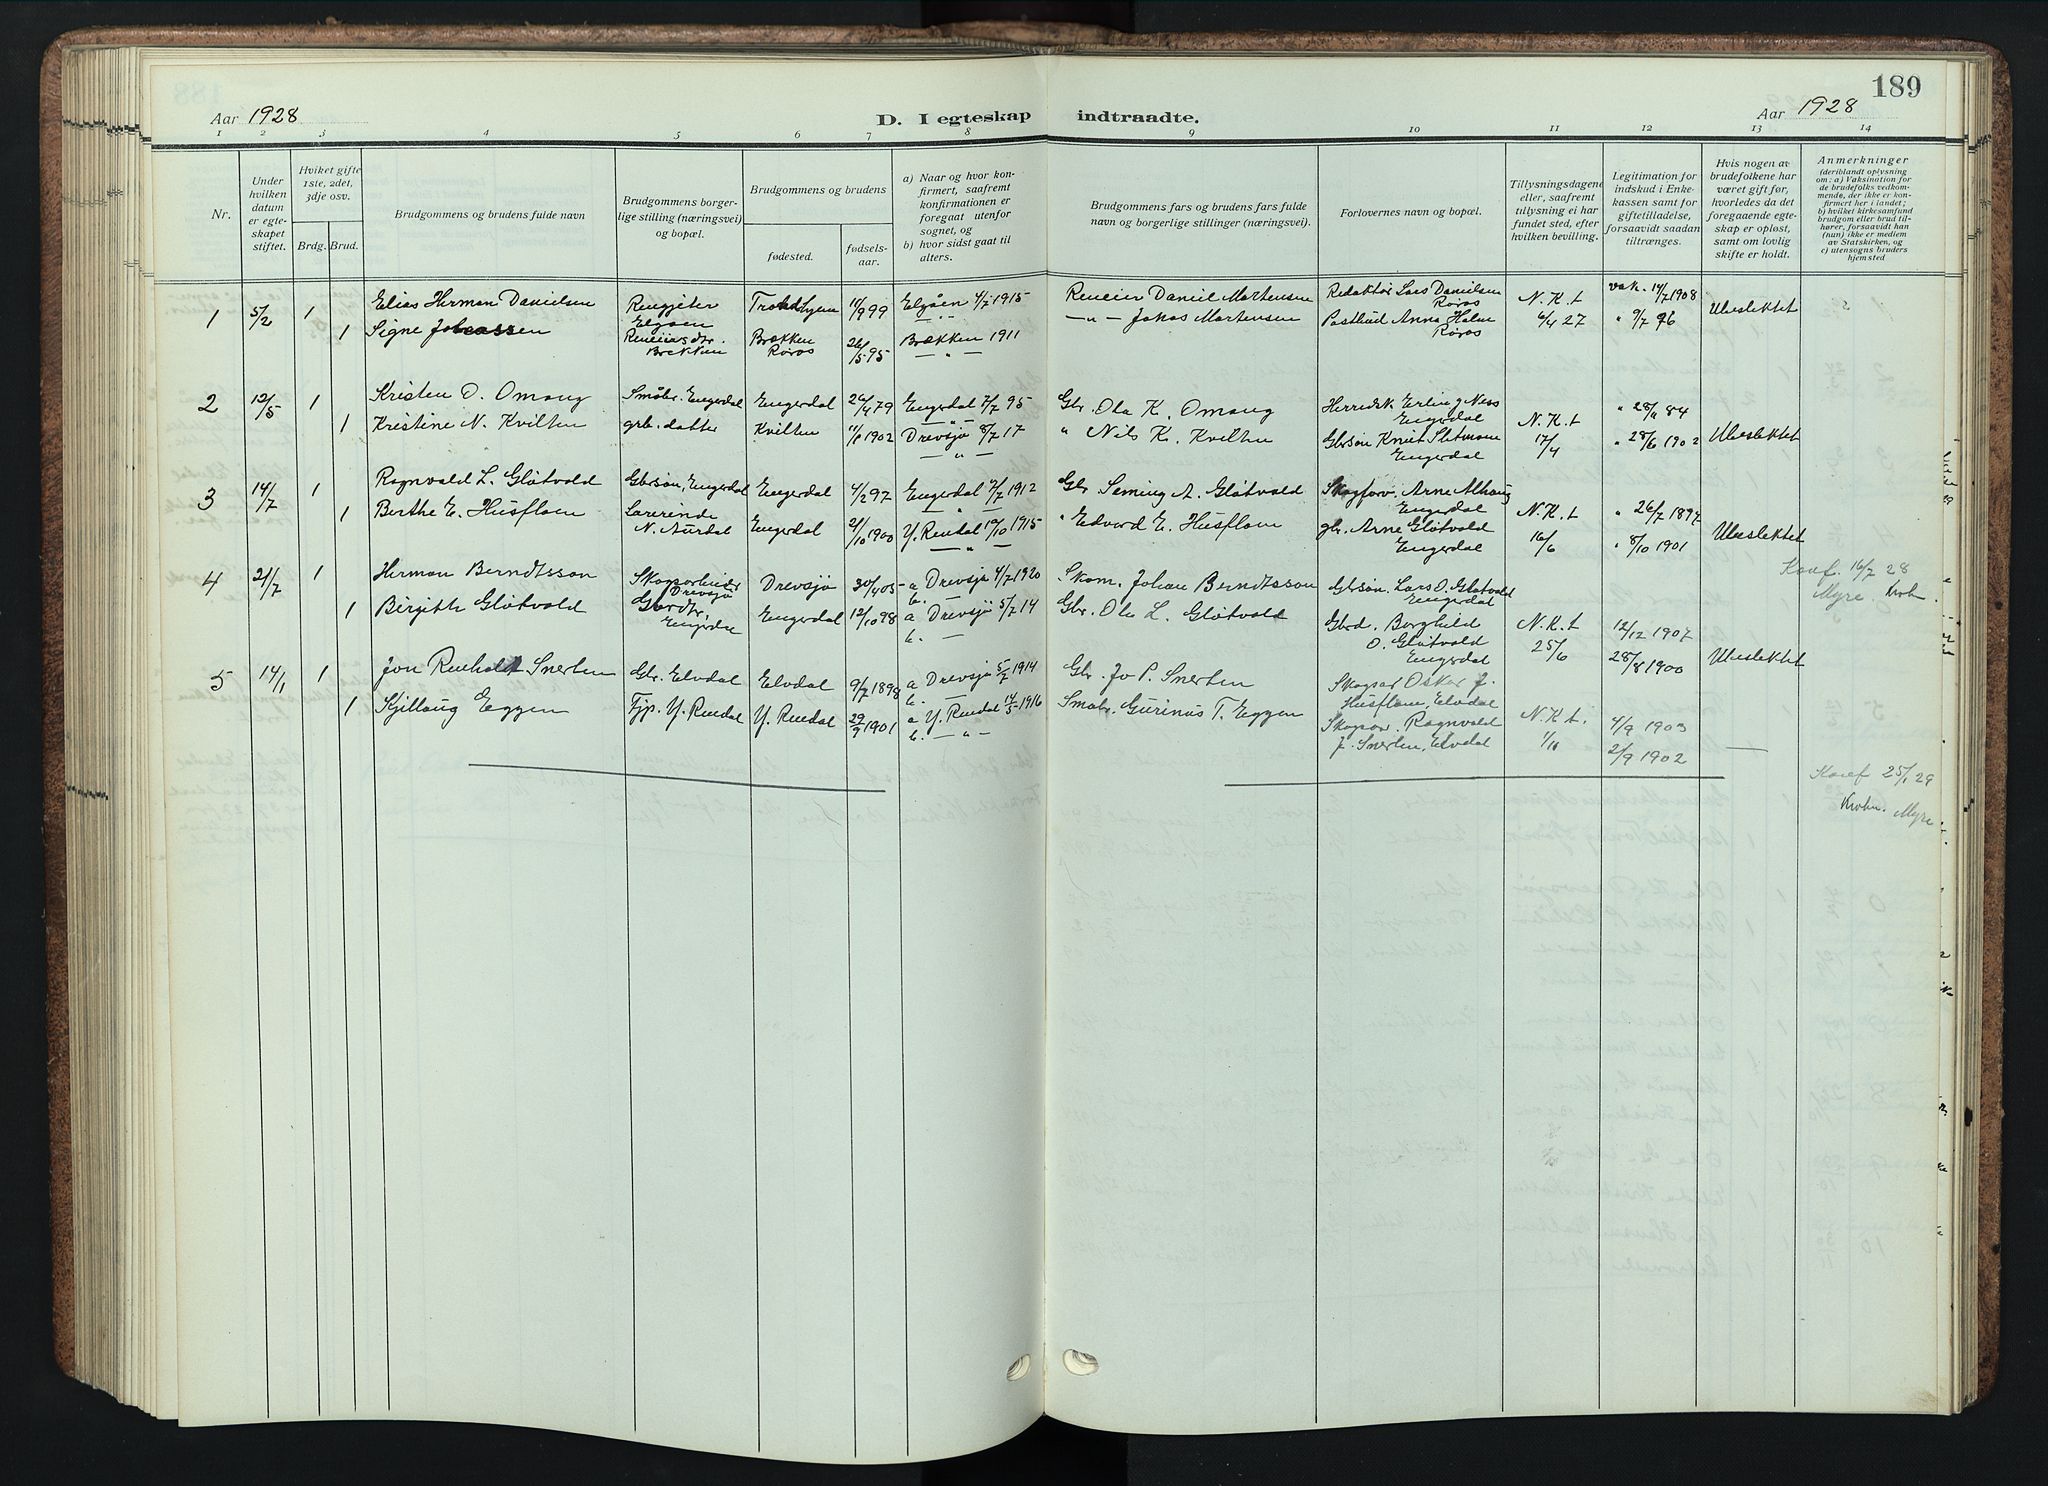 189
Aar 1928
D. I egteskap indtraadte.
Aar 1928
1 2 3 4 5 6 7 8 9 10 11 12 13 14
Nr.
Under hvilken datum er egteskapet stiftet.
Hviket gifte 1ste, 2det, 3dje osv.
Brdg. Brud.
Brudgommens og brudens fulde navn
Brudgommens borgerlige stilling (næringsvei) og bopæl.
Brudgommens og brudens
fødested.
fødselsaar.
a) Naar og hvor konfirmert, saafremt konfirmationen er foregaat utenfor sognet, og
b) hvor sidst gaat til alters.
Brudgommens fars og brudens fars fulde navn og borgerlige stillinger (næringsvei).
Forlovernes navn og bopæl.
Tillysningsdagene eller, saafremt tillysning ei har fundet sted, efter hvilken bevilling.
Legitimation for indskud i Enkekassen samt for giftetilladelse, forsaavidt saadan tiltrænges.
Hvis nogen av brudefolkene har været gift før, hvorledes da det foregaaende egteskap er opløst, samt om lovlig skifte er holdt.
Anmerkninger (deriblandt oplysning om: a) Vaksination for de brudefolks vedkommende, der ikke er konfirmert her i landet; b) hvilket kirkesamfund brudgom eller brud tilhører, forsaavidt han (hun) ikke er medlem av Statskirken, og c) utensogns bruders hjemsted
1 5/2 1 Elias Herman Danielsen Rengjeter Elgåen Trondhjem 11/9 99 Elgåen 4/7 1915 Reneier Daniel Mortensen Redaktør Lars Danielsen Røros N. K. t vak. 14/7 1908 Ubeslektet
1 Signe Reneiersdtr. Brekken Brækken Røros 26/5 95 Brækken 1911 — " — Jakob Mortensen Postbud Anna Holm Røros 6/4 27 " 9/7 96
2 12/5 1 Kristen O. Omang Småbr. Engerdal Engerdal 26/4 79 Engerdal 7/7 95 Gbr. Ola K. Omang Herredsk Erling Ness Engerdal N. K. t " 84
1 Kristine N. Kvilten grb. datter Kvilten 1902 Drevsjø 8/7 17 " Nils K. Kvilten Gbrsøn Knut Engerdal 17/4 " 28/6 1902 Ubeslektet
3 14/7 1 Ragnvald L. Gløtvold Gbrsøn, Engerdal Engerdal 4/2 97 Engerdal 7/7 1912 Gbr Seming A. Gløtvold Skogforv. Arne Alhaug Engerdal N. K. t " 26/7 1897
1 Berthe E. Husfloen Lærerinde N. Aurdal Engerdal 21/10 1900 Y. Rendal 10/10 1915 " Edvard E. Husfloen gbr. Arne Gløtvold Engerdal 16/6 " 8/10 1901 Ubeslektet
4 21/7 1 Herman Berndtsson Skogsarbeider Drevsjø Drevsjø 30/4 05 a Drevsjø 4/7 1920 b. Skom. Johan Berndtsson Gbrsøn. Lars O. Gløtvold Engerdal Konf. 16/7 28 Myre. Krohn.
1 Birgitte Gløtvold Gårdtr. Engerdal Engerdal 12/10 98 a Drevsjø 5/7 14 b. — Gbr. Ola L. Gløtvold Gbrd. Borghild O. Gløtvold Engerdal N. K. t 25/6 12/12 1907 28/8 1900 Ubeslektet
5 14/1 1 Jon Reinholdt Snerten Gbr. Elvdal Elvdal 9/7 1898 a Drevsjø 5/7 1914 b. Gbr. Jo P. Snerten Skogsar Oskar J. Husfloen, Elvdal
1 Kjellaug Eggen Tjp. Y. Rendal Y. Rendal 29/9 1901 a Y. Rendal 14/5 1916 b. — " — Småbr. Gurinus T. Eggen Skogsar. Ragnvald J. Snerten, Elvdal N. K. t. 1/10 4/9 1903 2/9 1902 —
Konf 25/1 29
Krohn. Myre